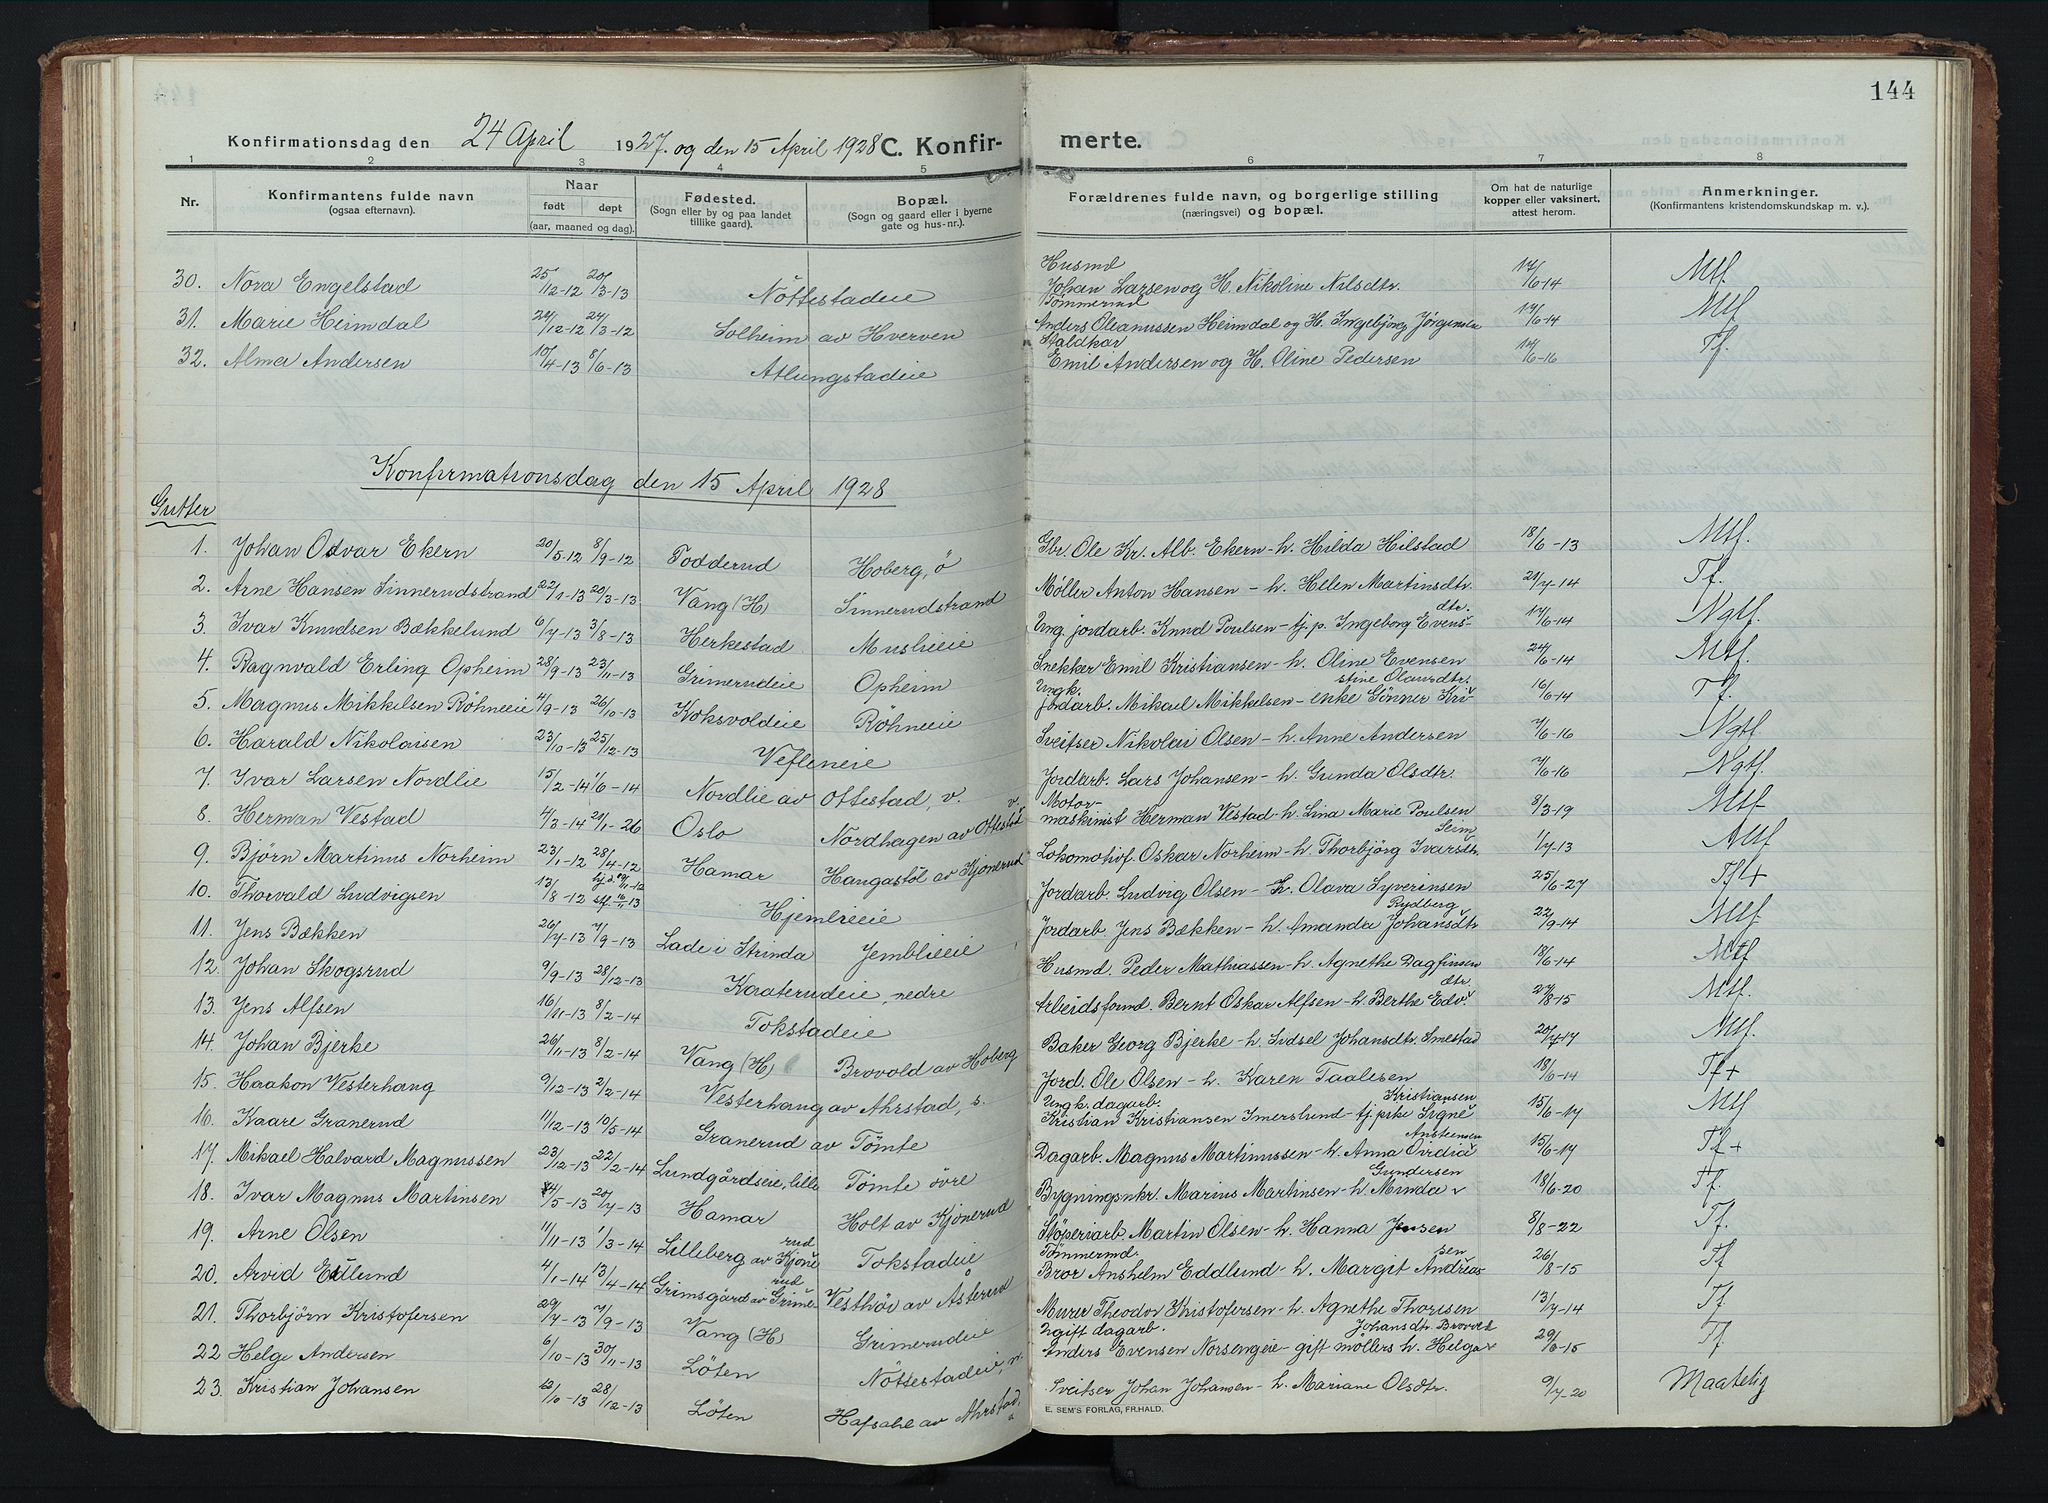 144
Konfirmationsdag den 24 April 1927. og den 15 April 1928 C. Konfir- merte.
1 2 3 4 5 6 7 8
Nr. Konfirmantens fulde navn (ogsaa efternavn). Naar født døpt (aar, maaned og dag). Fødested. (Sogn eller by og paa landet tillike gaard). Bopæl. (Sogn og gaard eller i byerne gate og hus-nr.). Forældrenes fulde navn, og borgerlige stilling (næringsvei) og bopæl. Om hat de naturlige kopper eller vaksinert, attest herom. Anmerkninger. (Konfirmantens kristendomskundskap m. v.).
30. Nova Engelstad 25/12-12 20/3-13 Nöttestadeie Husmd Johan Larsen og H. Nikoline Nilsdtr. 17/6-14 Mtf.
31. Marie Heimdal 24/12-12 24/3-12 Solheim av Hverven Tømmermd Anders Oleanussen Heimdal og H. Ingebjörg Jørgensen 17/6-14 Mtf
32. Alma Andersen 10/4-13 8/6-13 Atlungstadeie Staldkar Emil Andersen og H. Oline Pedersen 17/6-16 Tf.
Konfirmationsdag den 15 April 1928
Gutter
1. Johan Odvar Ekern 20/5-12 8/9-12 Fodderud Hoberg, ö Gbr. Ole Kr. Alb. Ekern - h. Hilda Hilstad 18/6-13 Mtf.
2. Arne Hansen Sinnerudstrand 22/1-13 20/3-13 Vang (H) Sinnerudstrand Møller Anton Hansen - h. Helen Martinsdtr. 21/7-14 Tf.
3. Ivar Knudsen Bækkelund 6/7-13 3/8-13 Herkestad Muslieie Ung. jordarb. Knud Poulsen - tj.p. Ingeborg Evensdtr. 17/6-14 Ngtf.
4. Ragnvald Erling Opheim 28/9-13 23/11-13 Grimerudeie Opheim Snekker Emil Kristiansen - h. Oline Evensen 24/6-14 Mtf.
5. Magnus Mikkelsen Röhneeie 4/9-13 26/10-13 Koksvoldeie Röhneeie Ungk. Jordarb. Mikael Mikkelsen - enke Gönner Kristine Olausdtr. 16/6-14 Tf.
6. Harald Nikolaisen 23/10-13 25/12-13 Vefleneie Sveitser Nikolai Olsen - h. Anne Andersen 7/6-16 Ngtf
7. Ivar Larsen Nordlie 15/2-14 1/6-14 Nordlie av Ottestad, v. Jordarb. Lars Johansen - h. Gunda Olsdtr. 7/6-16 Ngtf.
8. Herman Vestad 4/3-14 21/1-26 Oslo Nordhagen av Ottestad v. Motormaskinist Herman Vestad - h. Lina Marie Poulsen 8/3-19 Mtf
9. Björn Martinus Norheim 23/1-12 28/4-12 Hamar Hangastöl av Kjonerud Lokomotivf. Oskar Norheim - h. Thorbjörg Ivarsdtr. Seim 1/7-13 Mtf
10. Thorvald Ludvigsen 13/8-12 Hjemlieeie Jordarb. Ludvig Olsen - h. Olava Syverinsen 25/6-27 Tf+
11. Jens Bækken 26/7-13 7/9-13 Lade i Strinda Jemblieeie Jordarb. Jens Bækken - h. Amanda Johansdtr Rydberg 22/9-14 Mtf
12. Johan Skogsrud 9/9-13 28/12-13 Karaterudeie, nedre Husmd. Peder Mathiassen - h. Agnethe Dagfinsen 18/6-14 Mtf
13. Jens Alfsen 16/11-13 8/2-14 Tokstadeie Arbeidsformd. Bernt Oskar Alfsen - h. Berthe Edv. dtr. 27/8-15 Mtf.
14. Johan Bjerke 26/11-13 8/2-14 Vang (H) Brovold av Hoberg Baker Georg Bjerke - h. Sidsel Johansdtr. Smestad 20/7-17 Mtf
15. Haakon Vesterhaug 9/12-13 2/2-14 Vesterhaug av Ahrstad, s. Jord. Ole Olsen - h. Karen Taalesen 18/6-14 Tf+
16. Kaare Granerud 11/12-13 10/5-14 Granerud av Tömte Ungk. dagarb. Kristian Kristiansen Imerslund - tj.pike Signe Kristiansen 15/6-17 Mtf
17. Mikael Halvard Magnussen 23/12-13 22/2-14 Lundgårdseie, lille Tömte övre Dagarb. Magnus Martinussen - h. Anna Ovidia Austensen 15/6-17 Tf+
18. Ivar Magnus Martinsen 4/5-13 20/7-13 Hamar Holt av Kjonerud Bygningsnkr. Marius Martinsen - h. Minda Gundersen 18/6-20 Tf.
19. Arne Olsen 11/11-13 1/3-14 Lilleberg av Kjonerud Tokstadeie Støperiarb. Martin Olsen - h. Hanna Jensen 8/8-22 Tf.
20. Arvid Edlund 4/1-14 13/4-14 Grimsgård av Grimerud Vesthöi av Åsterud Tømmermd. Bror Anshelm Eddlund - h. Margit Andreassen 26/8-15 Tf
21. Thorbjörn Kristofersen 29/7-13 7/9-13 Vang (H) Grimerudeie Murer Theodor Kristofersen - h. Agnethe Thoresen 13/7-14 Tf
22 Helge Andersen 6/10-13 30/11-13 Löten Nöttestadeie, n. Ugift dagarb. Anders Evensen Norsengeie - gift møllers h. Helga Johansdtr. 29/6-15 Tf.
23. Kristian Johansen 12/10-13 28/12-13 Löten Hafsahl av Ahrstad, Sveitser Johan Johansen - h. Mariane Olsdtr. 9/7-20 Maatelig
E. SEM'S FORLAG, FR.HALD.